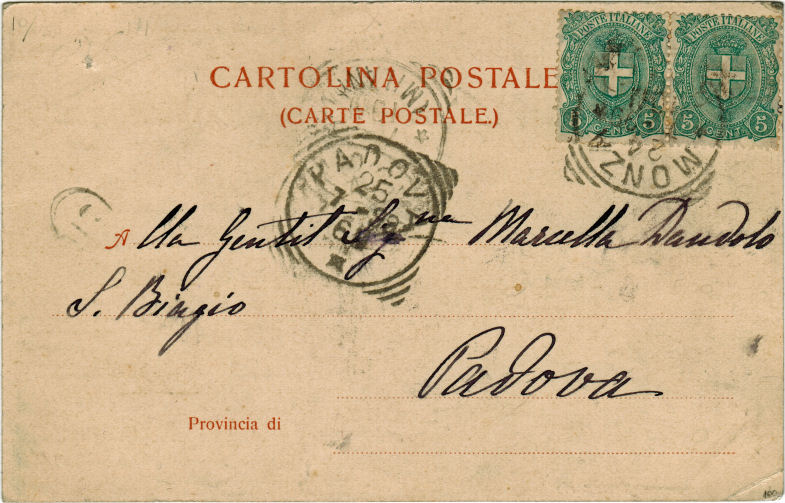 POSTE ITALIANE POSTE ITALIANE
5 CENT 5 5 CENT 5
CARTOLINA POSTALE
(CARTE POSTALE.)
MONZA
PADOVA
25
A lla Gentil Signa Marcella Dandolo
S. Biagio
Padova
Provincia di
100